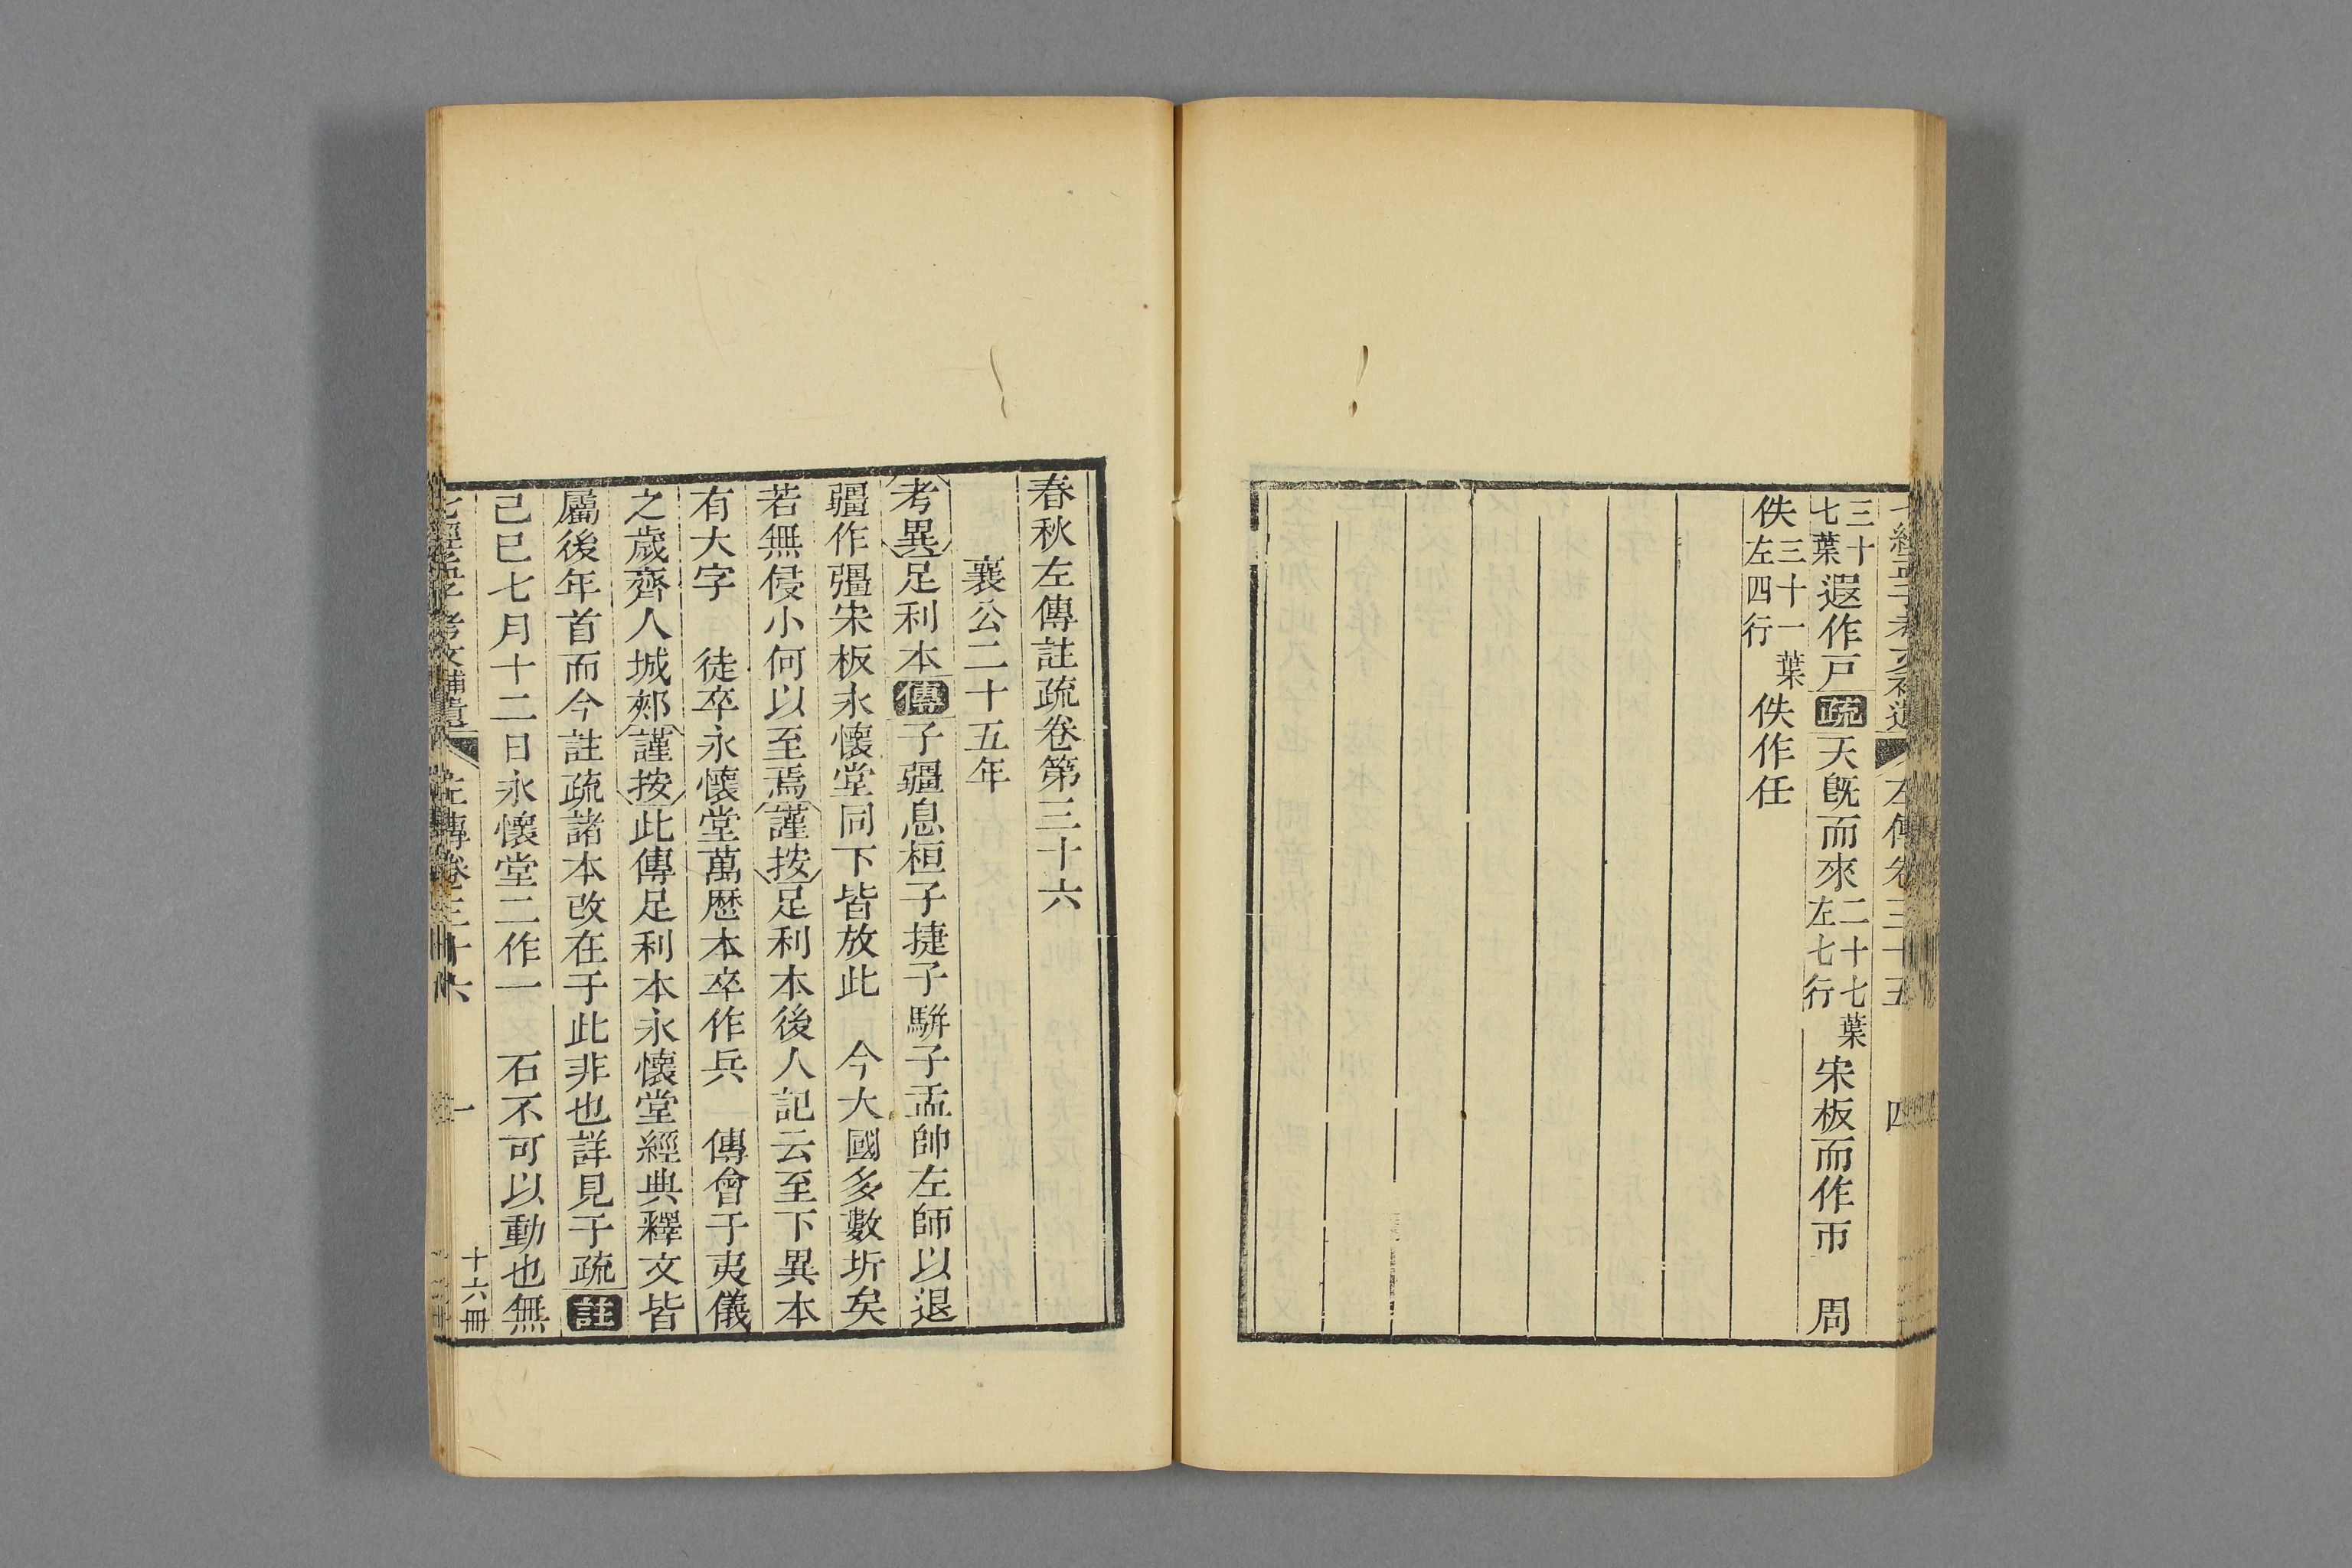 七經孟子考文補遺 左傳卷三十五 四
三十七葉遐作戸疏天旣而來二十七葉左七行宋板而作帀 周
佚三十一葉左四行佚作任
春秋左傳註疏卷第三十六
襄公二十五年
考異足利本傳子疆息桓子捷子駢子盂帥左師以退
疆作彊宋板永懷堂同下皆放此 今大國多數圻矣
若無侵小何以至焉謹按足利本後人記云至下異本
有大字 徒卒永懷堂萬歷本卒作兵 傳會于夷儀
之歲齊人城郟謹按此傳足利本永懷堂經典釋文皆
屬後年首而今註疏諸本改在于此非也詳見于疏註
己巳七月十二日永懷堂二作一 石不可以動也無
七經孟子考文補遺 左傳卷三十六 一 十六冊